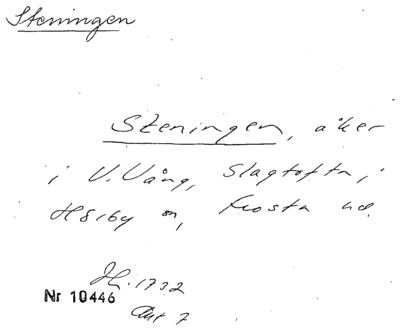 Steningen
Steningen, åker
i V. Vång, Slagtofta, i
Hörby sn, Frosta hd.
1732
Nr 10446
Akt 7